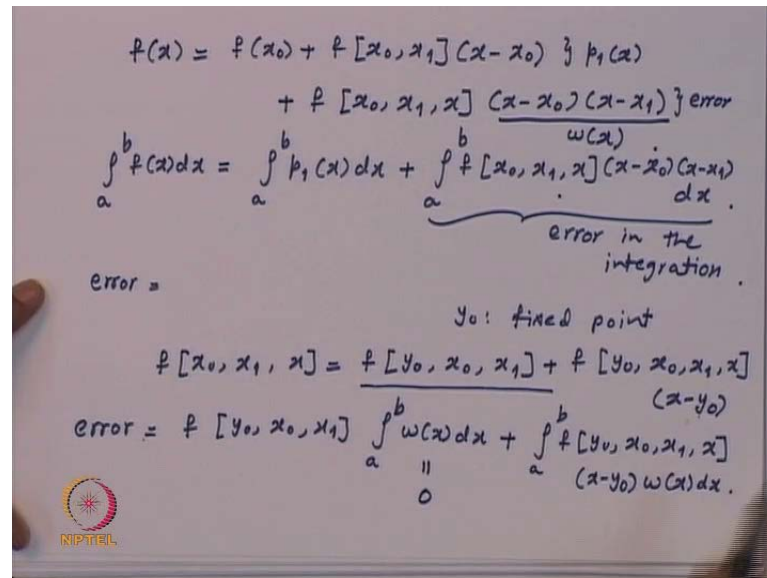 f(x) = f(x₀) + f[x₀, x₁](x-x₀) } p₁(x)
+ f[x₀, x₁, x] (x-x₀)(x-x₁) } error
ω(x) .
∫ₐᵇ f(x)dx = ∫ₐᵇ p₁(x)dx + ∫ₐᵇ f[x₀, x₁, x](x-x₀)(x-x₁) dx .
error in the
integration .
error =
y₀: fixed point
f[x₀, x₁, x] = f[y₀, x₀, x₁] + f[y₀, x₀, x₁, x]
(x-y₀)
error = f[y₀, x₀, x₁] ∫ₐᵇ ω(x)dx + ∫ₐᵇ f[y₀, x₀, x₁, x]
(x-y₀) ω(x)dx .
||
0
NPTEL